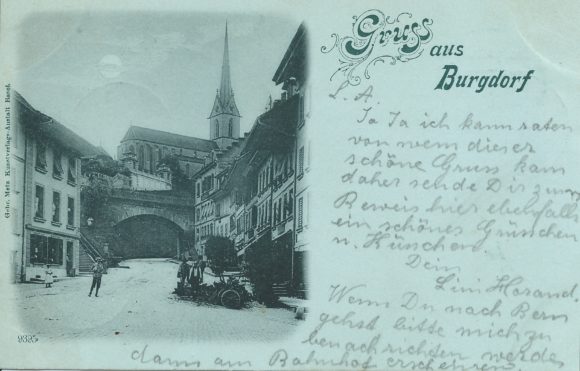 Gruss
aus
Burgdorf
L. A.
Ja Ja ich kann raten
von wem dieser
schöne Gruss kam
daher sende Dir zum
Beweis hier ebenfalls
ein schönes Grüsschen
u. Küsschen.
Dein
Wenn Du nach Bern
gehst bitte mich zu
benachrichten werde
dann am Bahnhof erscheinen.
Gebr. Metz Kunstverlags-Anstalt Basel.
9325